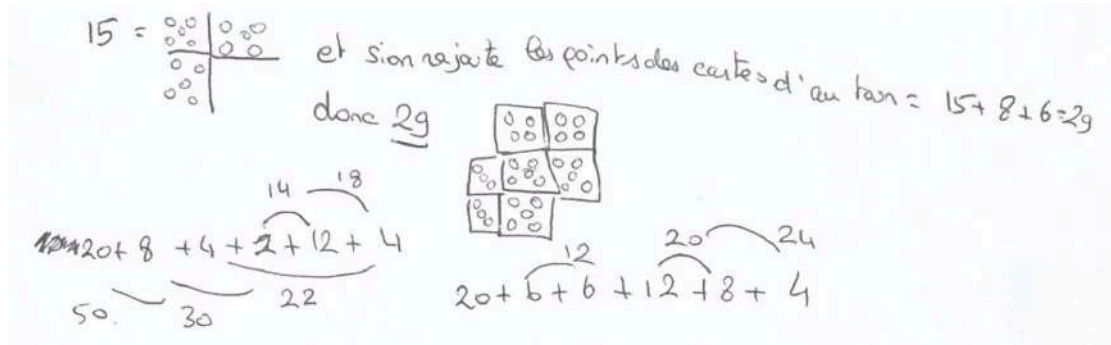 15 = et si on rajoute les points des cartes d'au tour = 15 + 8 + 6 = 29
donc 29
14 18
20 + 8 + 4 + 2 + 12 + 4
22
50. 30
12 20 24
20 + 6 + 6 + 12 + 8 + 4